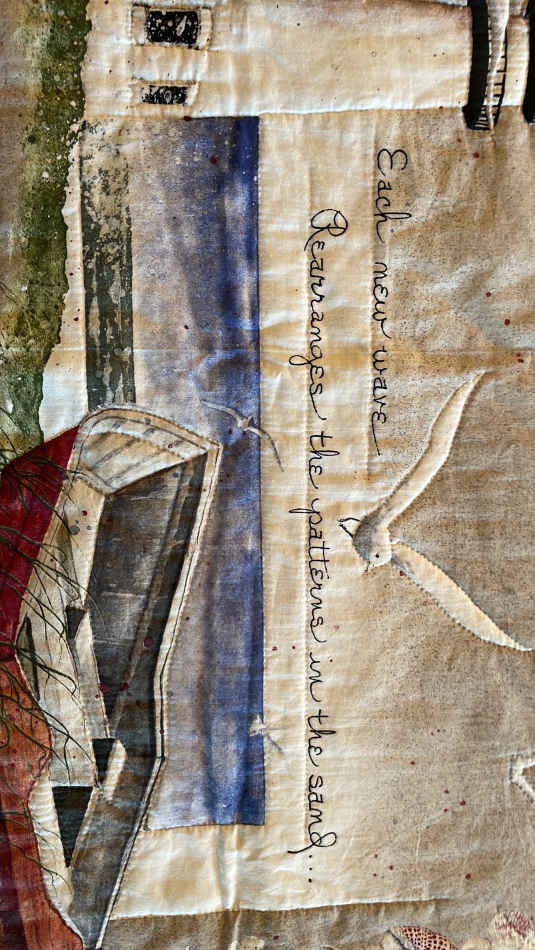 Each new wave
Rearranges the patterns in the sand...